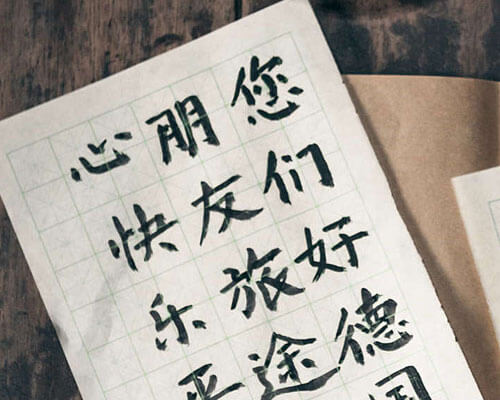 您们好德国
朋友旅途
心快乐平